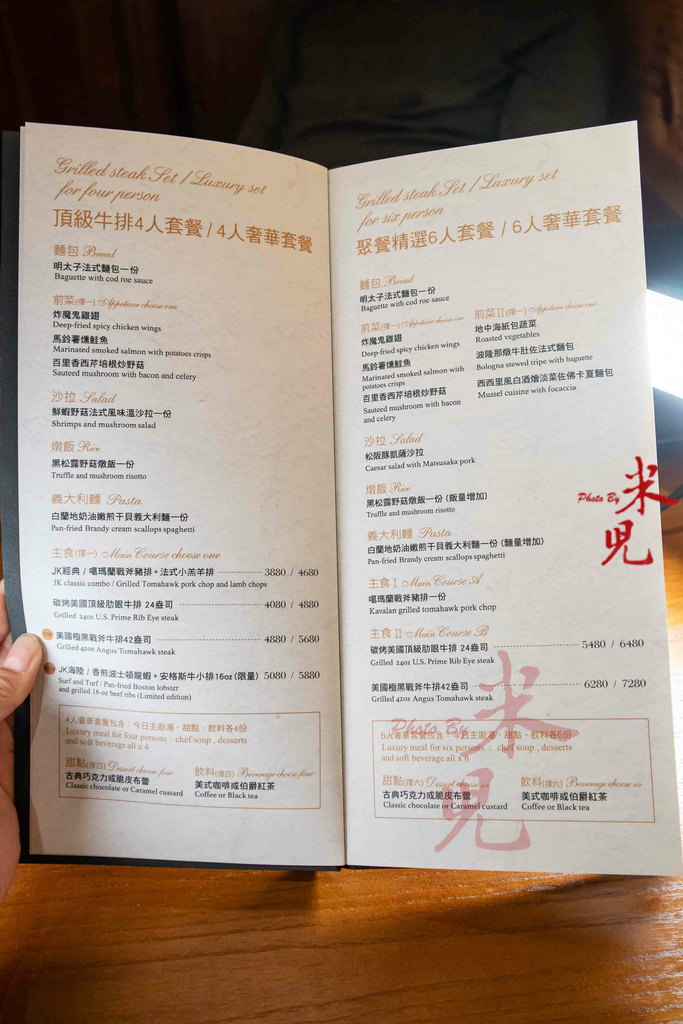 Grilled steak Set / Luxury set
for four person
頂級牛排4人套餐 / 4人奢華套餐
麵包 Bread
明太子法式麵包一份
Baguette with cod roe sauce
前菜(擇一) Appetizer choose one
炸魔鬼雞翅
Deep-fried spicy chicken wings
馬鈴薯燻鮭魚
Marinated smoked salmon with potatoes crisps
百里香西芹培根炒野菇
Sauteed mushroom with bacon and celery
沙拉 Salad
鮮蝦野菇法式風味溫沙拉一份
Shrimps and mushroom salad
燉飯 Rice
黑松露野菇燉飯一份
Truffle and mushroom risotto
義大利麵 Pasta
白蘭地奶油嫩煎干貝義大利麵一份
Pan-fried Brandy cream scallops spaghetti
主食(擇一) Main Course choose one
JK經典 / 噶瑪蘭戰斧豬排+法式小羔羊排 3880 / 4680
JK classic combo / Grilled Tomahawk pork chop and lamb chops
碳烤美國頂級肋眼牛排 24盎司 4080 / 4880
Grilled 24oz U.S. Prime Rib Eye steak
美國極黑戰斧牛排42盎司 4880 / 5680
Grilled 42oz Angus Tomahawk steak
JK海陸 / 香煎波士頓龍蝦+安格斯牛小排16oz (限量) 5080 / 5880
Surf and Turf / Pan-fried Boston lobster
and grilled 16 oz beef ribs (Limited edition)
4人奢華套餐包含:今日主廚湯、甜點、飲料各4份
Luxury meal for four persons : chef soup , desserts
and soft beverage all x 4
甜點(擇四) Dessert choose four
古典巧克力或脆皮布蕾
Classic chocolate or Caramel custard
飲料(擇四) Beverage choose four
美式咖啡或伯爵紅茶
Coffee or Black tea
Grilled steak Set / Luxury set
for six person
聚餐精選6人套餐 / 6人奢華套餐
麵包 Bread
明太子法式麵包一份
Baguette with cod roe sauce
前菜(擇一) Appetizer choose one
炸魔鬼雞翅
Deep-fried spicy chicken wings
馬鈴薯燻鮭魚
Marinated smoked salmon with
potatoes crisps
百里香西芹培根炒野菇
Sauteed mushroom with bacon
and celery
前菜II(擇一) Appetizer choose one
地中海紙包蔬菜
Roasted vegetables
波隆那燉牛肚佐法式麵包
Bologna stewed tripe with baguette
西西里風白酒燴淡菜佐佛卡夏麵包
Mussel cuisine with focaccia
沙拉 Salad
松阪豚凱薩沙拉
Caesar salad with Matsusaka pork
燉飯 Rice
黑松露野菇燉飯一份 (飯量增加)
Truffle and mushroom risotto
義大利麵 Pasta
白蘭地奶油嫩煎干貝義大利麵一份 (麵量增加)
Pan-fried Brandy cream scallops spaghetti
主食 I Main Course A
噶瑪蘭戰斧豬排一份
Kavalan grilled tomahawk pork chop
主食 II Main Course B
碳烤美國頂級肋眼牛排 24盎司 5480 / 6480
Grilled 24oz U.S. Prime Rib Eye steak
美國極黑戰斧牛排42盎司 6280 / 7280
Grilled 42oz Angus Tomahawk steak
6人奢華套餐包含:今日主廚湯、甜點、飲料各6份
Luxury meal for six persons : chef soup , desserts
and soft beverage all x 6
甜點(擇六) Dessert choose six
古典巧克力或脆皮布蕾
Classic chocolate or Caramel custard
飲料(擇六) Beverage choose six
美式咖啡或伯爵紅茶
Coffee or Black tea
Photo By 米兒
Photo By 米兒